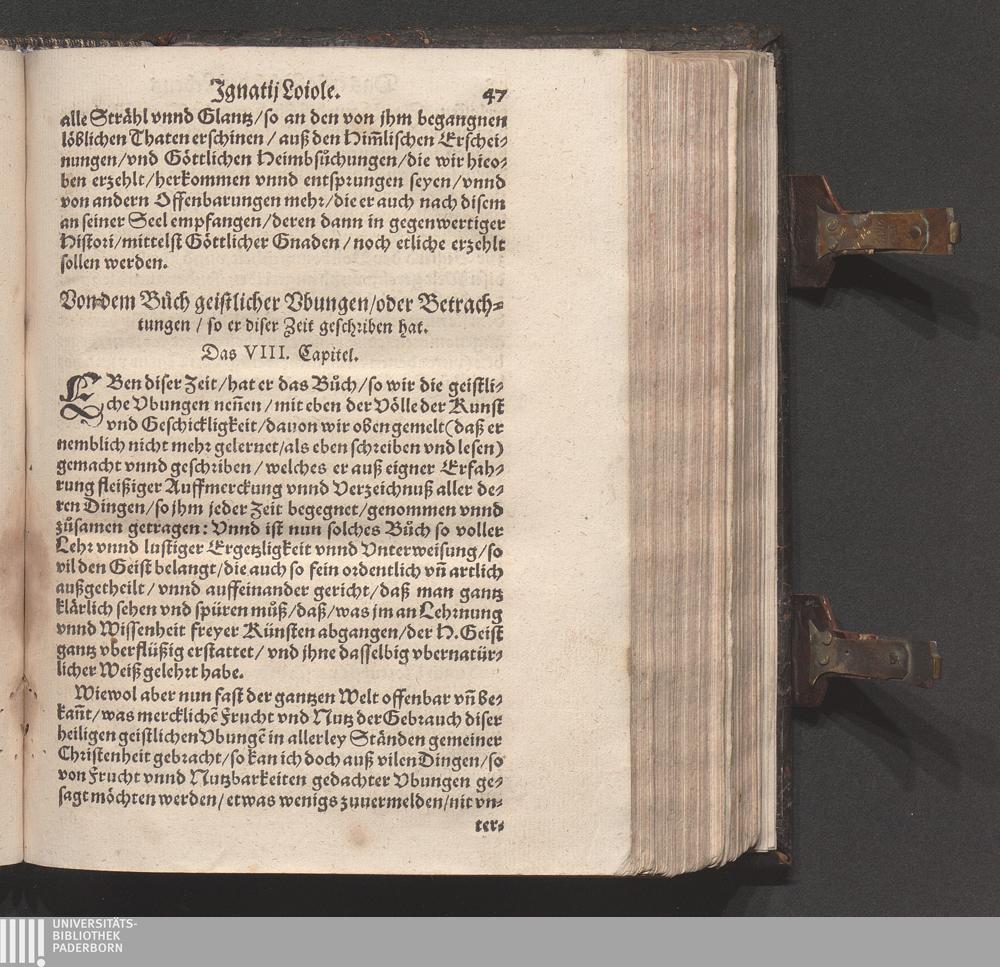 Ignatij Loiole. 47
alle Strähl vnnd Glantz/so an den von jhm begangnen
löblichen Thaten erschinen / auß den Him̃lischen Erschei-
nungen/vnd Göttlichen Heimbsůchungen/die wir hieo-
ben erzehlt/herkommen vnnd entsprungen seyen/vnnd
von andern Offenbarungen mehr/die er auch nach disem
an seiner Seel empfangen/deren dann in gegenwertiger
Histori/mittelst Göttlicher Gnaden / noch etliche erzehlt
sollen werden.
Von dem Bůch geistlicher Vbungen/oder Betrach-
tungen / so er diser Zeit geschriben hat.
Das VIII. Capitel.
EBen diser Zeit/hat er das Bůch/so wir die geistli-
che Vbungen neñen/mit eben der Völle der Kunst
vnd Geschickligkeit/dauon wir oben gemelt(daß er
nemblich nicht mehr gelernet/als eben schreiben vnd lesen)
gemacht vnnd geschriben / welches er auß eigner Erfah-
rung fleißiger Auffmerckung vnnd Verzeichnuß aller de-
ren Dingen/so jhm jeder Zeit begegnet/genommen vnnd
zůsamen getragen: Vnnd ist nun solches Bůch so voller
Lehr vnnd lustiger Ergetzligkeit vnnd Vnterweisung/so
vil den Geist belangt/die auch so fein ordentlich vñ artlich
außgetheilt / vnnd auffeinander gericht/daß man gantz
klärlich sehen vnd spüren můß/daß/was jm an Lehrnung
vnnd Wissenheit freyer Künsten abgangen/der H. Geist
gantz vberflüßig erstattet/ vnd jhne dasselbig vbernatür-
licher Weiß gelehrt habe.
Wiewol aber nun fast der gantzen Welt offenbar vñ be-
kañt/was mercklichẽ Frucht vnd Nutz der Gebrauch diser
heiligen geistlichen Vbungẽ in allerley Ständen gemeiner
Christenheit gebracht/so kan ich doch auß vilen Dingen/so
von Frucht vnnd Nutzbarkeiten gedachter Vbungen ge-
sagt möchten werden/etwas wenigs zuuermelden/nit vn-
ter-
UNIVERSITÄTS-
BIBLIOTHEK
PADERBORN